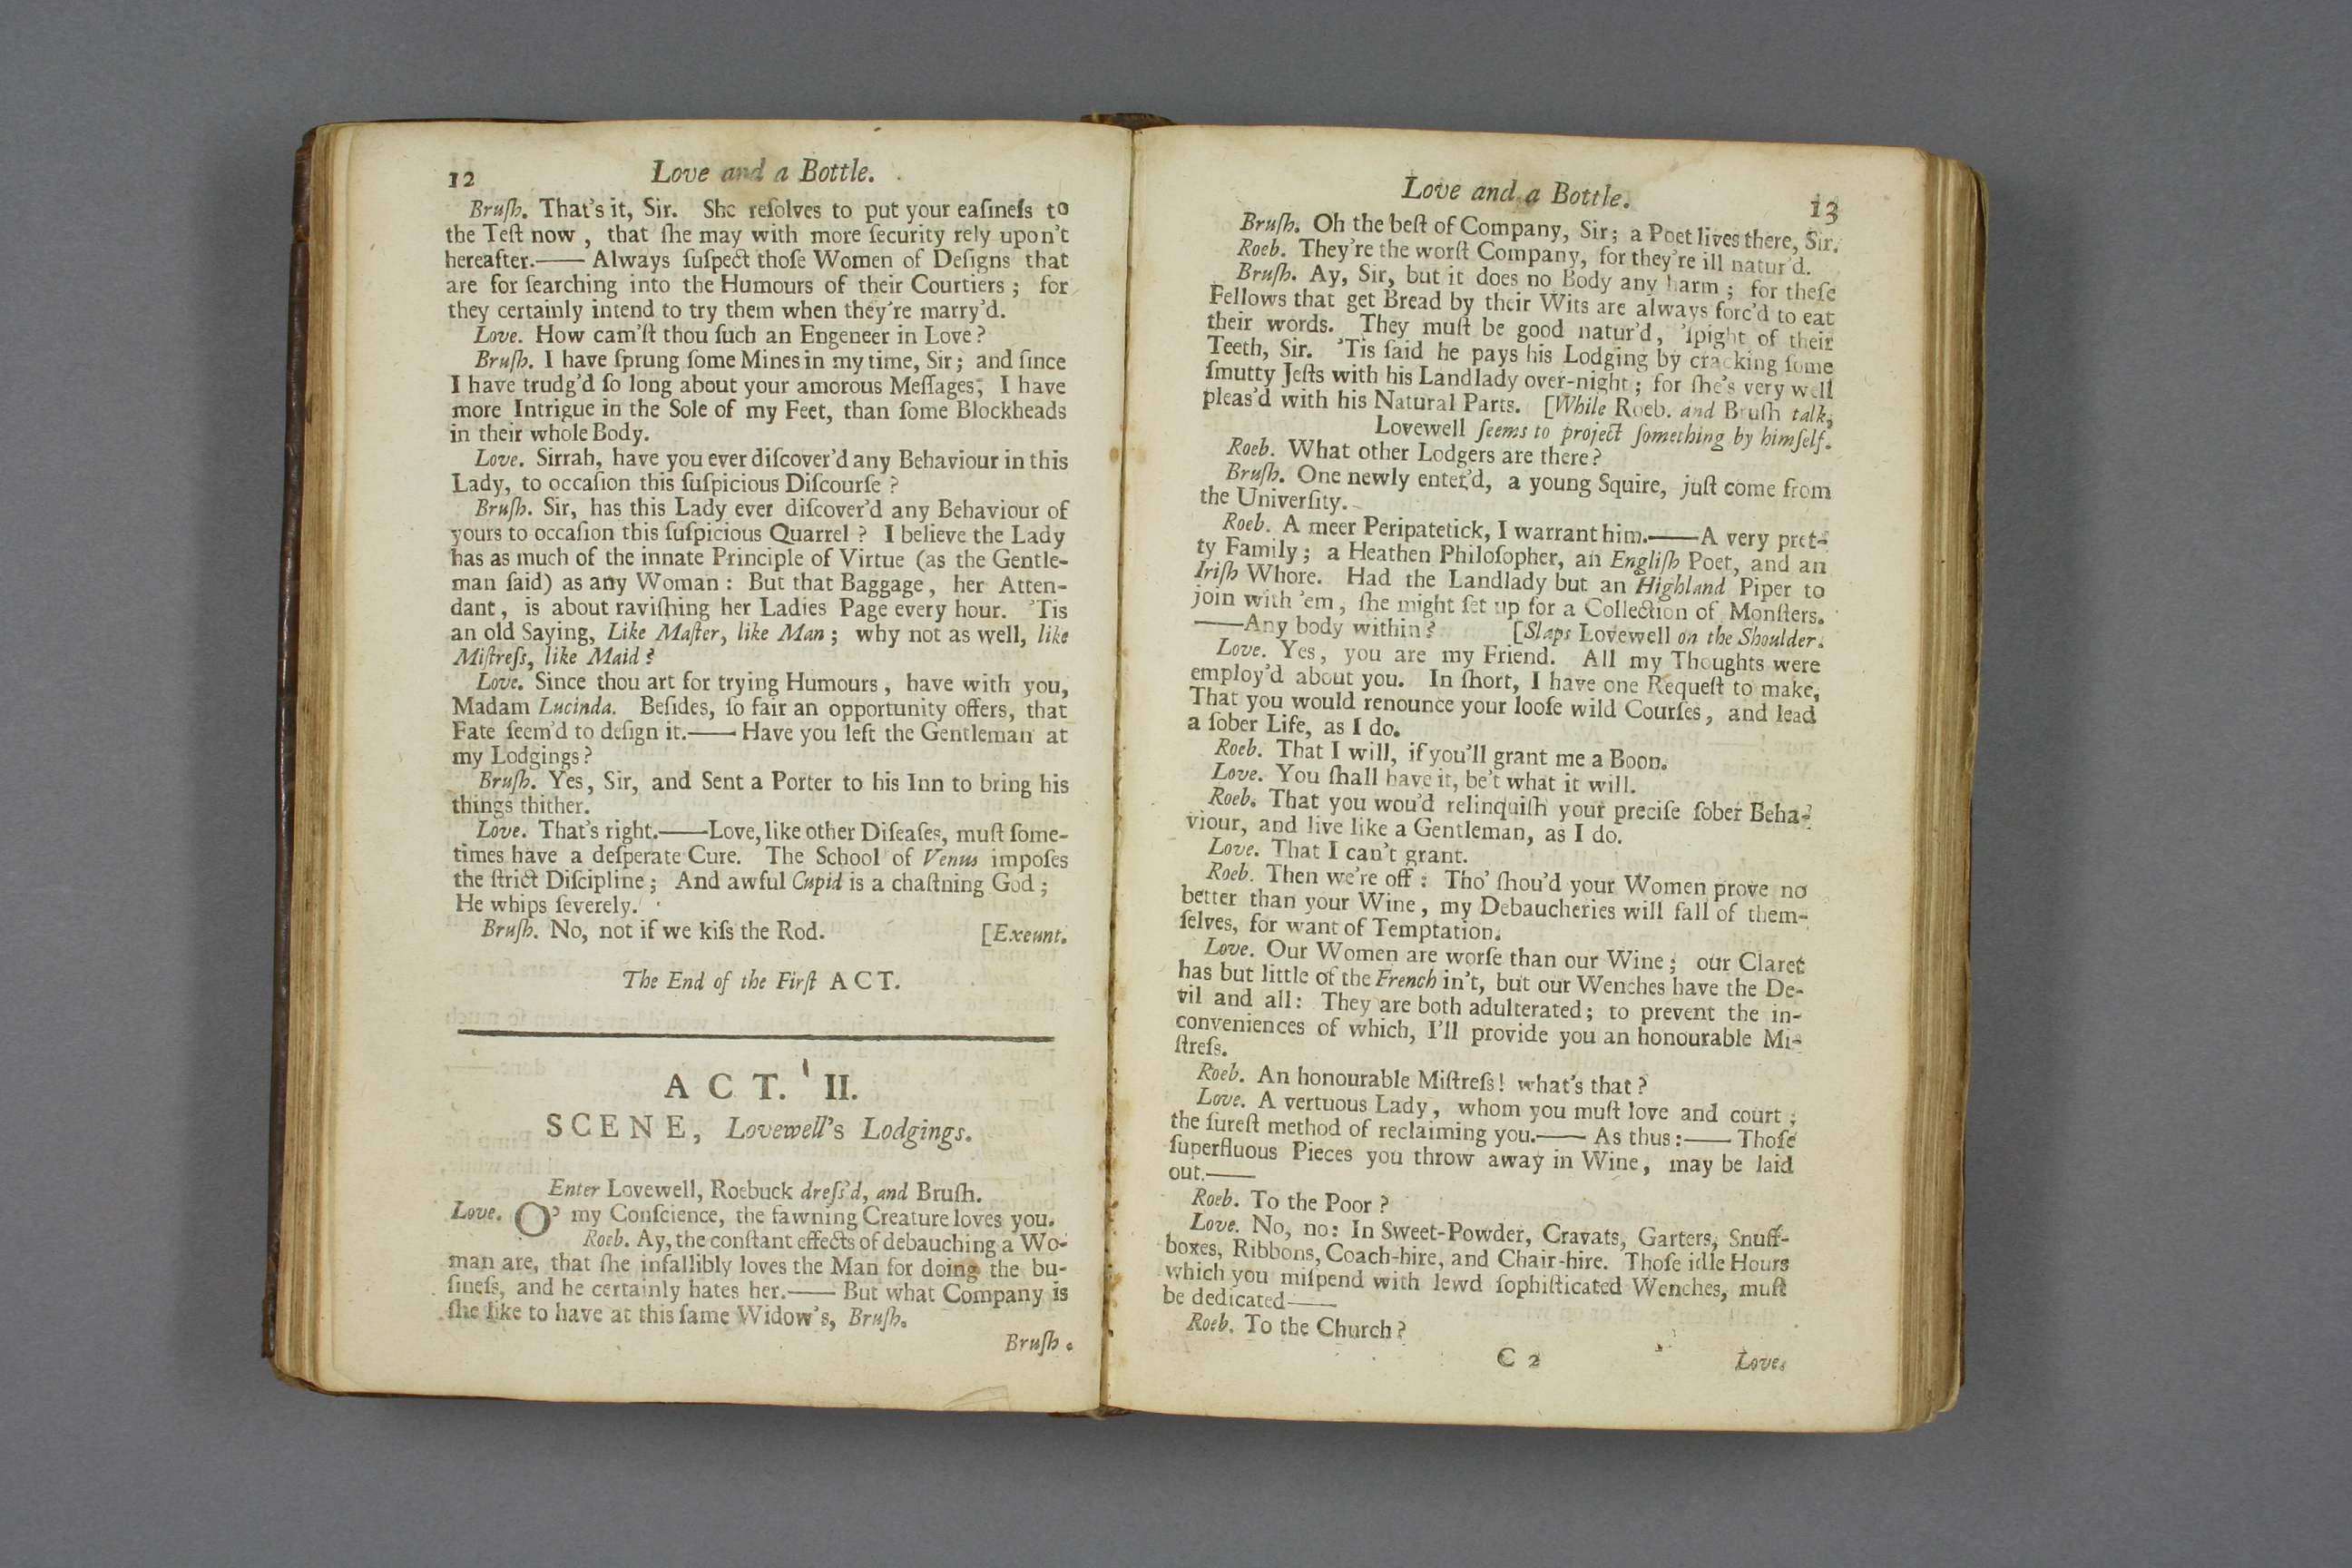 12 Love and a Bottle.
Bruſh. That's it, Sir. She reſolves to put your eaſineſs to
the Teſt now , that ſhe may with more ſecurity rely upon't
hereafter.—— Always ſuſpect thoſe Women of Deſigns that
are for ſearching into the Humours of their Courtiers ; for
they certainly intend to try them when they're marry'd.
Love. How cam'ſt thou ſuch an Engeneer in Love ?
Bruſh. I have ſprung ſome Mines in my time, Sir ; and ſince
I have trudg'd ſo long about your amorous Meſſages, I have
more Intrigue in the Sole of my Feet, than ſome Blockheads
in their whole Body.
Love. Sirrah, have you ever diſcover'd any Behaviour in this
Lady, to occaſion this ſuſpicious Diſcourſe ?
Bruſh. Sir, has this Lady ever diſcover'd any Behaviour of
yours to occaſion this ſuſpicious Quarrel ? I believe the Lady
has as much of the innate Principle of Virtue (as the Gentle-
man ſaid) as any Woman : But that Baggage , her Atten-
dant , is about raviſhing her Ladies Page every hour. 'Tis
an old Saying, Like Maſter, like Man ; why not as well, like
Miſtreſs, like Maid ?
Love. Since thou art for trying Humours , have with you,
Madam Lucinda. Beſides, ſo fair an opportunity offers, that
Fate ſeem'd to deſign it.—— Have you left the Gentleman at
my Lodgings ?
Bruſh. Yes, Sir, and Sent a Porter to his Inn to bring his
things thither.
Love. That's right.——Love, like other Diſeaſes, muſt ſome-
times have a deſperate Cure. The School of Venus impoſes
the ſtrict Diſcipline ; And awful Cupid is a chaſtning God ;
He whips ſeverely.
Bruſh. No, not if we kiſs the Rod. [Exeunt.
The End of the Firſt ACT.
ACT. II.
SCENE, Lovewell's Lodgings.
Enter Lovewell, Roebuck dreſs'd, and Bruſh.
Love. O' my Conſcience, the fawning Creature loves you.
Roeb. Ay, the conſtant effects of debauching a Wo-
man are, that ſhe infallibly loves the Man for doing the bu-
ſineſs, and he certainly hates her.—— But what Company is
ſhe like to have at this ſame Widow's, Bruſh.
Bruſh.
Love and a Bottle. 13
Bruſh. Oh the beſt of Company, Sir ; a Poet lives there, Sir.
Roeb. They're the worſt Company, for they're ill natur'd.
Bruſh. Ay, Sir, but it does no Body any harm ; for theſe
Fellows that get Bread by their Wits are always forc'd to eat
their words. They muſt be good natur'd, 'ſpight of their
Teeth, Sir. 'Tis ſaid he pays his Lodging by cracking ſome
ſmutty Jeſts with his Landlady over-night ; for ſhe's very well
pleas'd with his Natural Parts. [While Roeb. and Bruſh talk,
Lovewell ſeems to project ſomething by himſelf.
Roeb. What other Lodgers are there ?
Bruſh. One newly enter'd, a young Squire, juſt come from
the Univerſity.
Roeb. A meer Peripatetick, I warrant him.——A very pret-
ty Family ; a Heathen Philoſopher, an Engliſh Poet, and an
Iriſh Whore. Had the Landlady but an Highland Piper to
join with 'em , ſhe might ſet up for a Collection of Monſters.
——Any body within ? [Slaps Lovewell on the Shoulder.
Love. Yes, you are my Friend. All my Thoughts were
employ'd about you. In ſhort, I have one Requeſt to make,
That you would renounce your looſe wild Courſes, and lead
a ſober Life, as I do.
Roeb. That I will, if you'll grant me a Boon.
Love. You ſhall have it, be't what it will.
Roeb. That you wou'd relinquiſh your preciſe ſober Beha-
viour, and live like a Gentleman, as I do.
Love. That I can't grant.
Roeb. Then we're off : Tho' ſhou'd your Women prove no
better than your Wine, my Debaucheries will fall of them-
ſelves, for want of Temptation.
Love. Our Women are worſe than our Wine ; our Claret
has but little of the French in't, but our Wenches have the De-
vil and all : They are both adulterated ; to prevent the in-
conveniences of which, I'll provide you an honourable Mi-
ſtreſs.
Roeb. An honourable Miſtreſs ! what's that ?
Love. A vertuous Lady, whom you muſt love and court ;
the ſureſt method of reclaiming you.—— As thus :—— Thoſe
ſuperfluous Pieces you throw away in Wine, may be laid
out.——
Roeb. To the Poor ?
Love. No, no : In Sweet-Powder, Cravats, Garters, Snuff-
boxes, Ribbons, Coach-hire, and Chair-hire. Thoſe idle Hours
which you miſpend with lewd ſophiſticated Wenches, muſt
be dedicated——
Roeb. To the Church ?
C 2 Love.